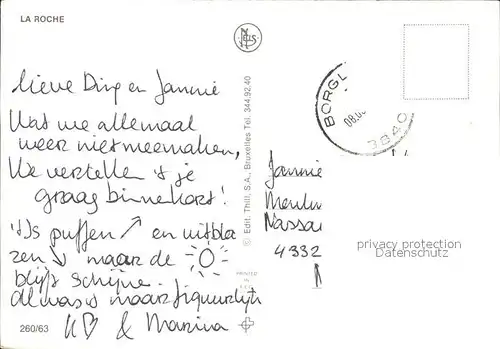 LA ROCHE
Lieve Dirp en Jannie
Wat we allemaal
weer niet meemaken,
We vertellen 't je
graag binnenkort!
't Is puffen ↗ en uitbla
zen ↘ maar de
blijft schijnen.
Al was 't maar figuurlijk
& Marina
260/63
© Edit. Thill, S.A., Bruxelles Tel. 344.92.40
NELS
PRINTED
BORGL
3840
Jannie
Meulen
Nassau
4332
privacy protection
Datenschutz